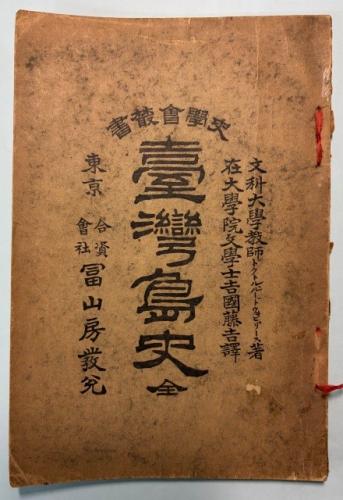 史學會叢書
文科大學教師ドクトルリース著
在大學院文學士吉國藤吉譯
臺灣島史 全
東京
合資
會社
冨山房發兌